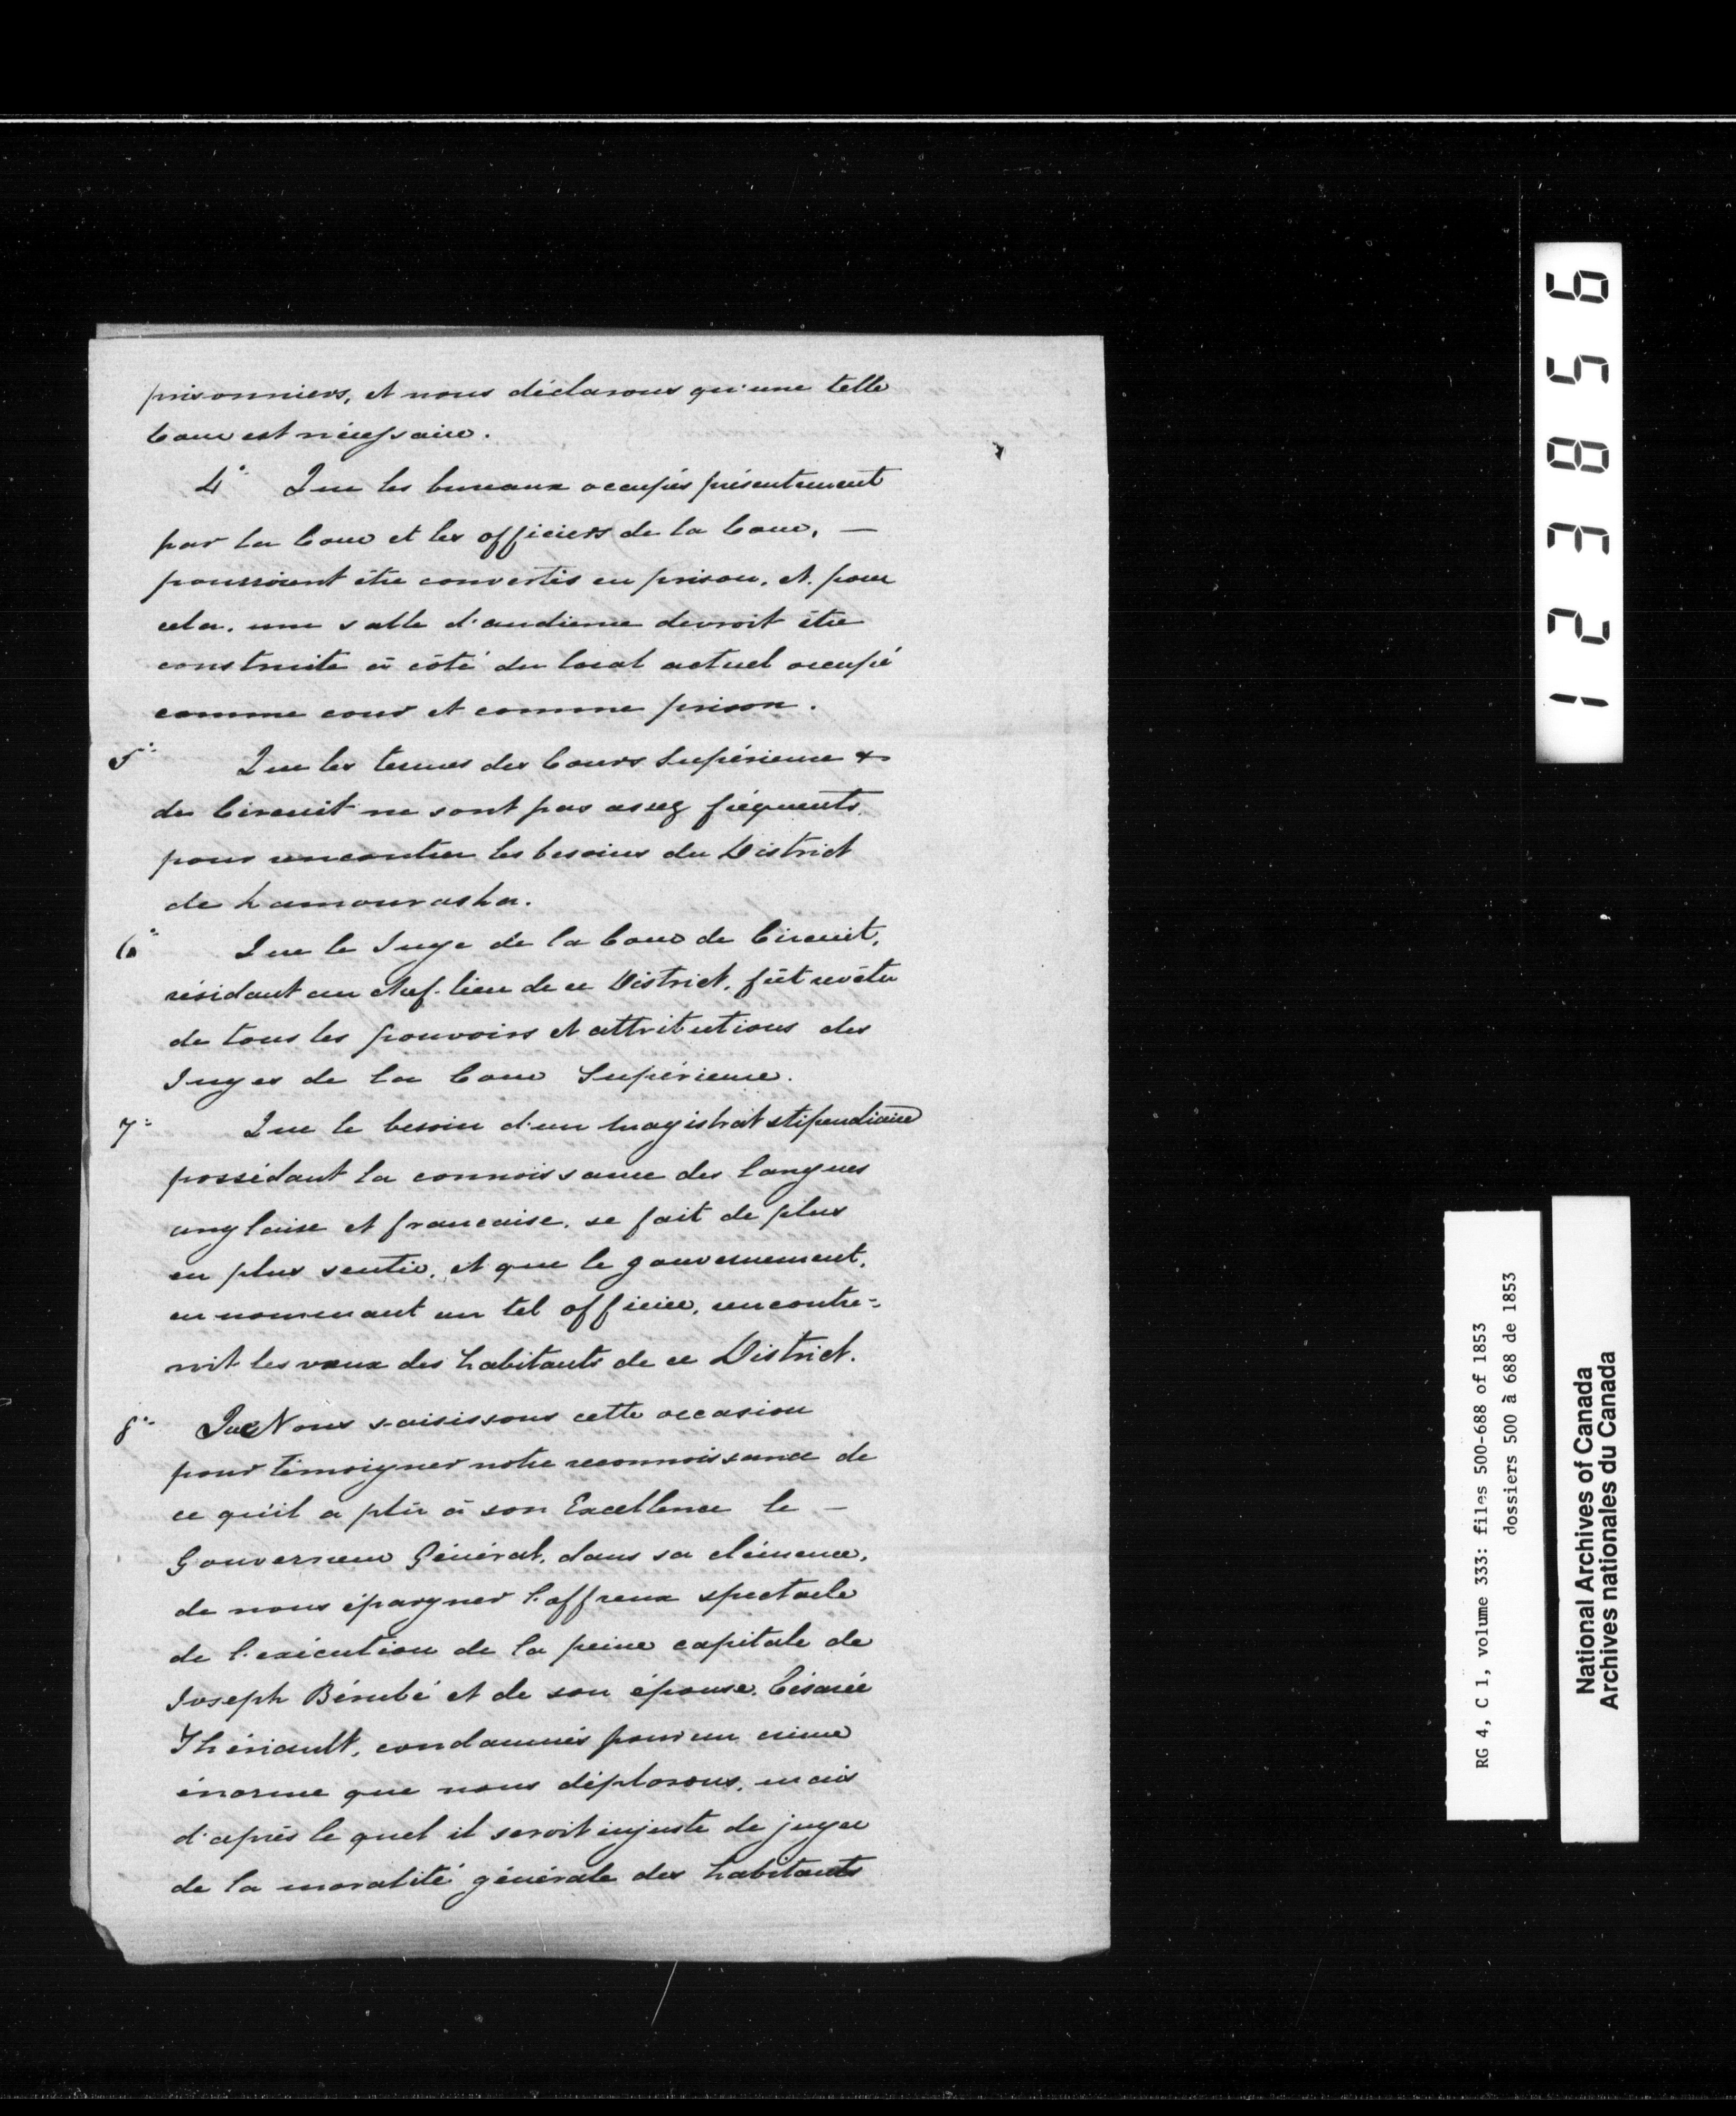 prisonniers, et nous déclarons qu'une telle
Cour est nécessaire.
4° Que les bureaux occupés présentement
par la Cour et les officiers de la Cour, —
pourroient être convertis en prison, et pour
cela, une salle d'audience devroit être
construite à côté du local actuel occupé
comme cour et comme prison.
5° Que les termes des Cours Supérieure &
de Circuit ne sont pas assez fréquents,
pour rencontrer les besoins du District
de Kamouraska.
6° Que le Juge de la Cour de Circuit,
résidant au chef-lieu de ce District, fût revêtu
de tous les pouvoirs et attributions des
Juges de la Cour Supérieure.
7° Que le besoin d'un magistrat stipendiaire
possédant la connoissance des langues
anglaise et francaise, se fait de plus
en plus sentir, et que le gouvernement,
en nommant un tel officier, rencontre-
roit les vœux des habitants de ce District.
8° Que Nous saisissons cette occasion
pour témoigner notre reconnoissance de
ce qu'il a plû à son Excellence le —
Gouverneur Général, dans sa clémence,
de nous épargner l'affreux spectacle
de l'exécution de la peine capitale de
Joseph Bérubé et de son épouse, Césarée
Thériault, condamnés pour un crime
énorme que nous déplorons, mais
d'après le quel il seroit injuste de juger
de la moralité générale des habitants
123856
RG 4, C 1, volume 333: files 500-688 of 1853
dossiers 500 à 688 de 1853
National Archives of Canada
Archives nationales du Canada